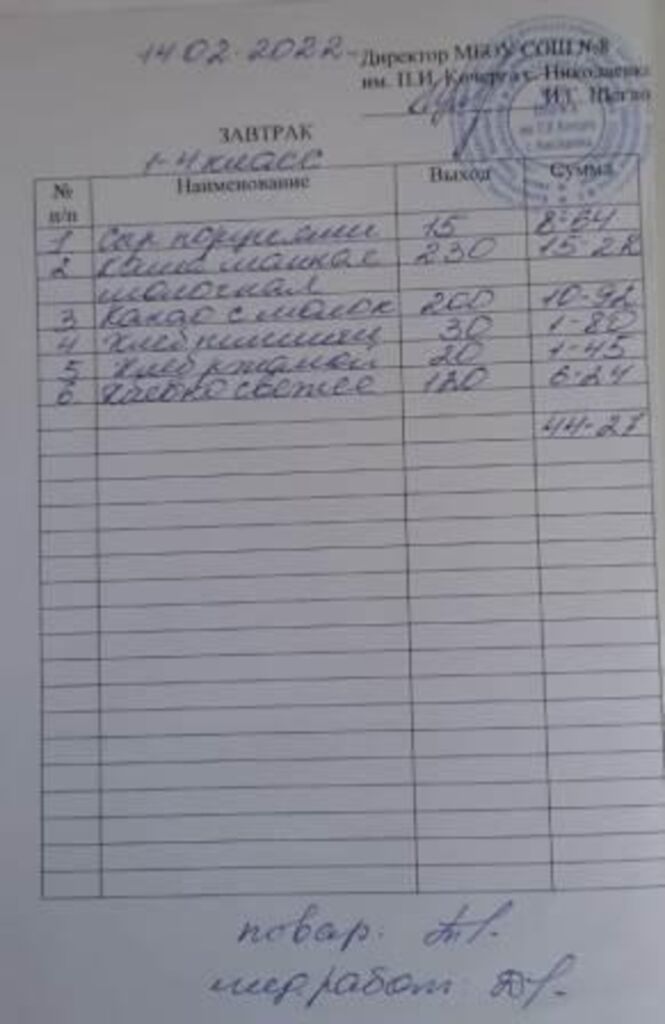 14 02. 2022-
Директор МБОУ СОШ №8
им. П.И. Кочерга с. Николаевка
ЗАВТРАК
1-4 класс
№ п/п Наименование Выход Сумма
1 Сыр порциями 15 8-64
2 каша манная 230 15-22
молочная
3 какао с молок 200 10-92
4 хлеб пшениц 30 1-80
5 хлеб ржаной 20 1-45
6 яблоко свежее 120 6-24
44-27
повар.
мед.работ